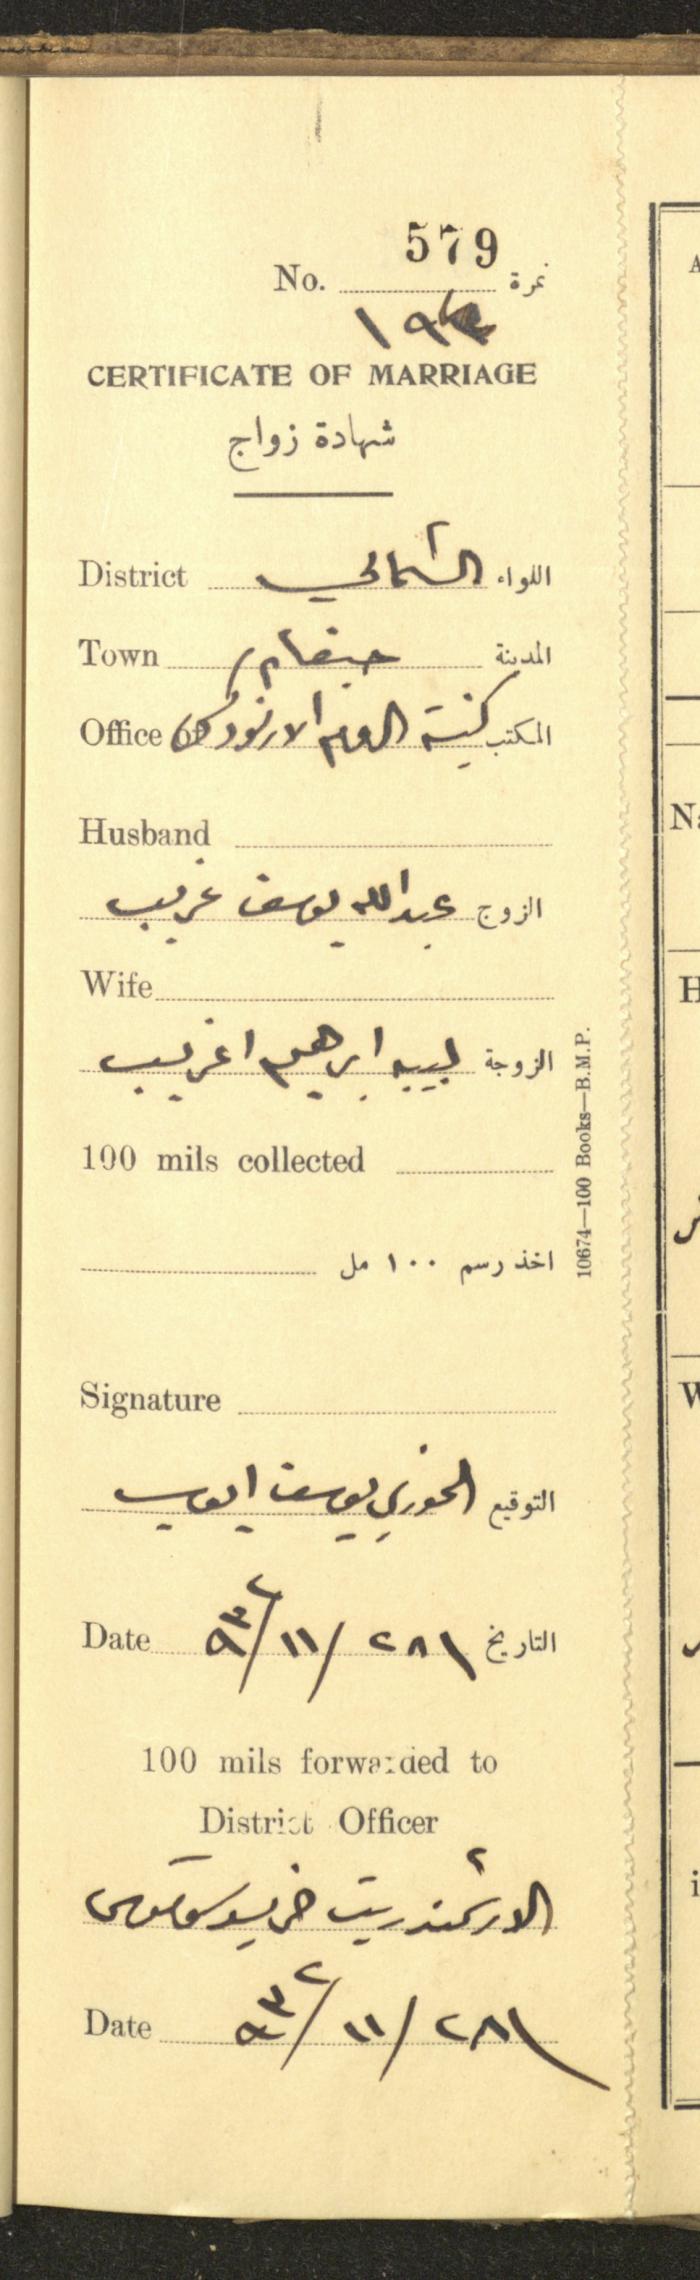 579
No. نمرة
CERTIFICATE OF MARRIAGE
شهادة زواج
District الشمالي اللواء
Town حيفا المدينة
Office of كنيسة الروم الارثوذكس المكتب
Husband
عبدالله يوسف غريب الزوج
Wife
لبيبه ابرهيم اغريب الزوجة
100 mils collected
اخذ رسم ١٠٠ مل
10674—100 Books—B.M.P.
Signature
الخوري يوسف ايوب التوقيع
Date ٢٨/١١/٩٣٢ التاريخ
100 mils forwarded to
District Officer
الارشمندريت
Date ٢٨/١١/٩٣٢